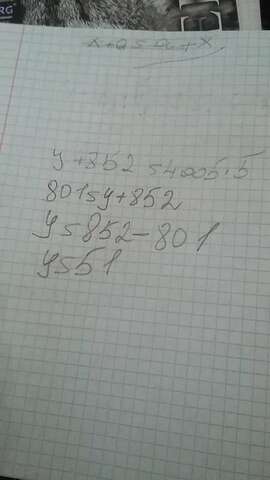 RG
y+852=4005:5
801=y+852
y=852-801
y=51